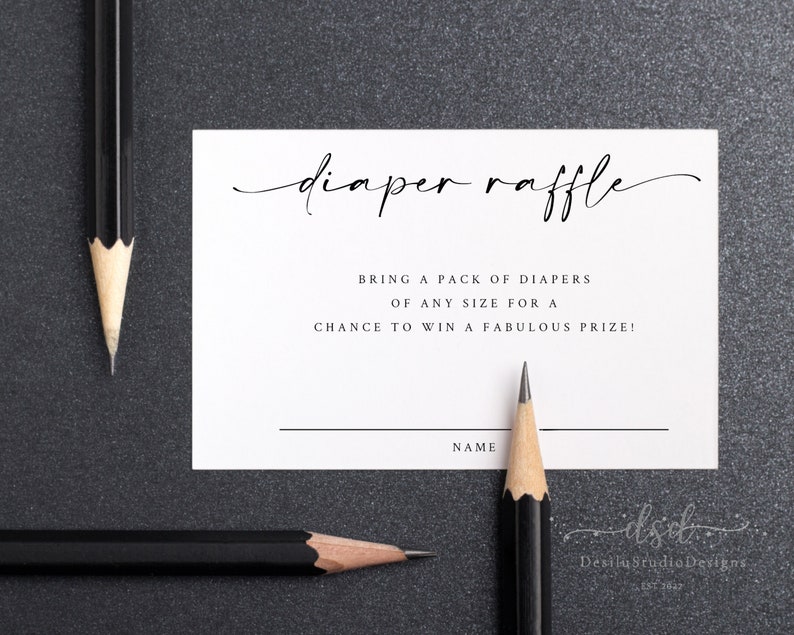 diaper raffle
BRING A PACK OF DIAPERS
OF ANY SIZE FOR A
CHANCE TO WIN A FABULOUS PRIZE!
NAME
dsd
DesiluStudioDesigns
EST 2022